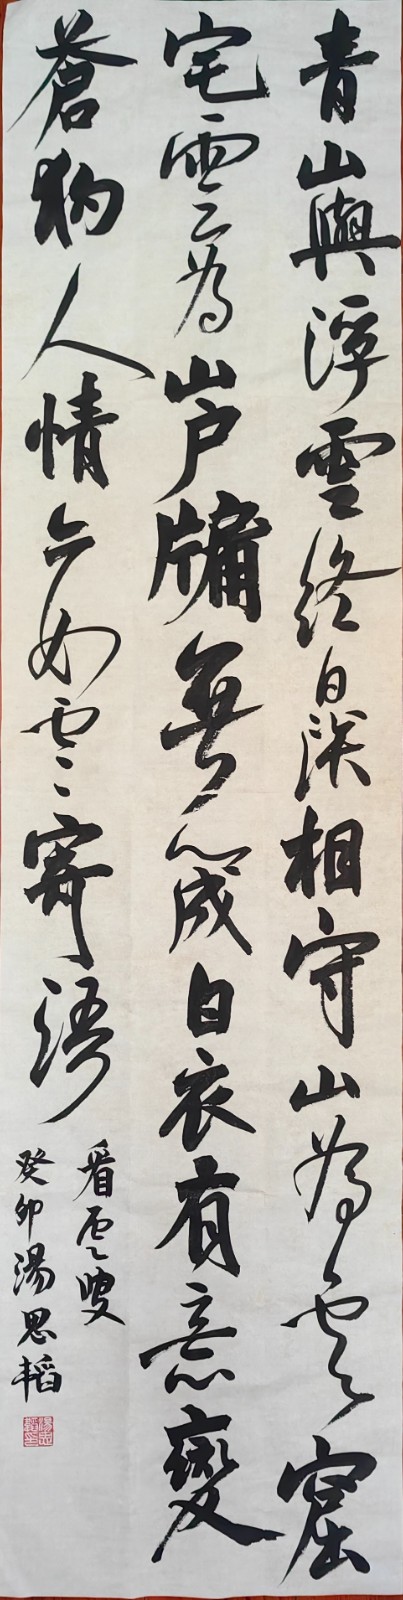 青山與浮雲終日深相守山為雲窟
宅雲為山戶牖無心成白衣有意變
蒼狗人情亦如雲寄語
看雲叟
癸卯湯思韜